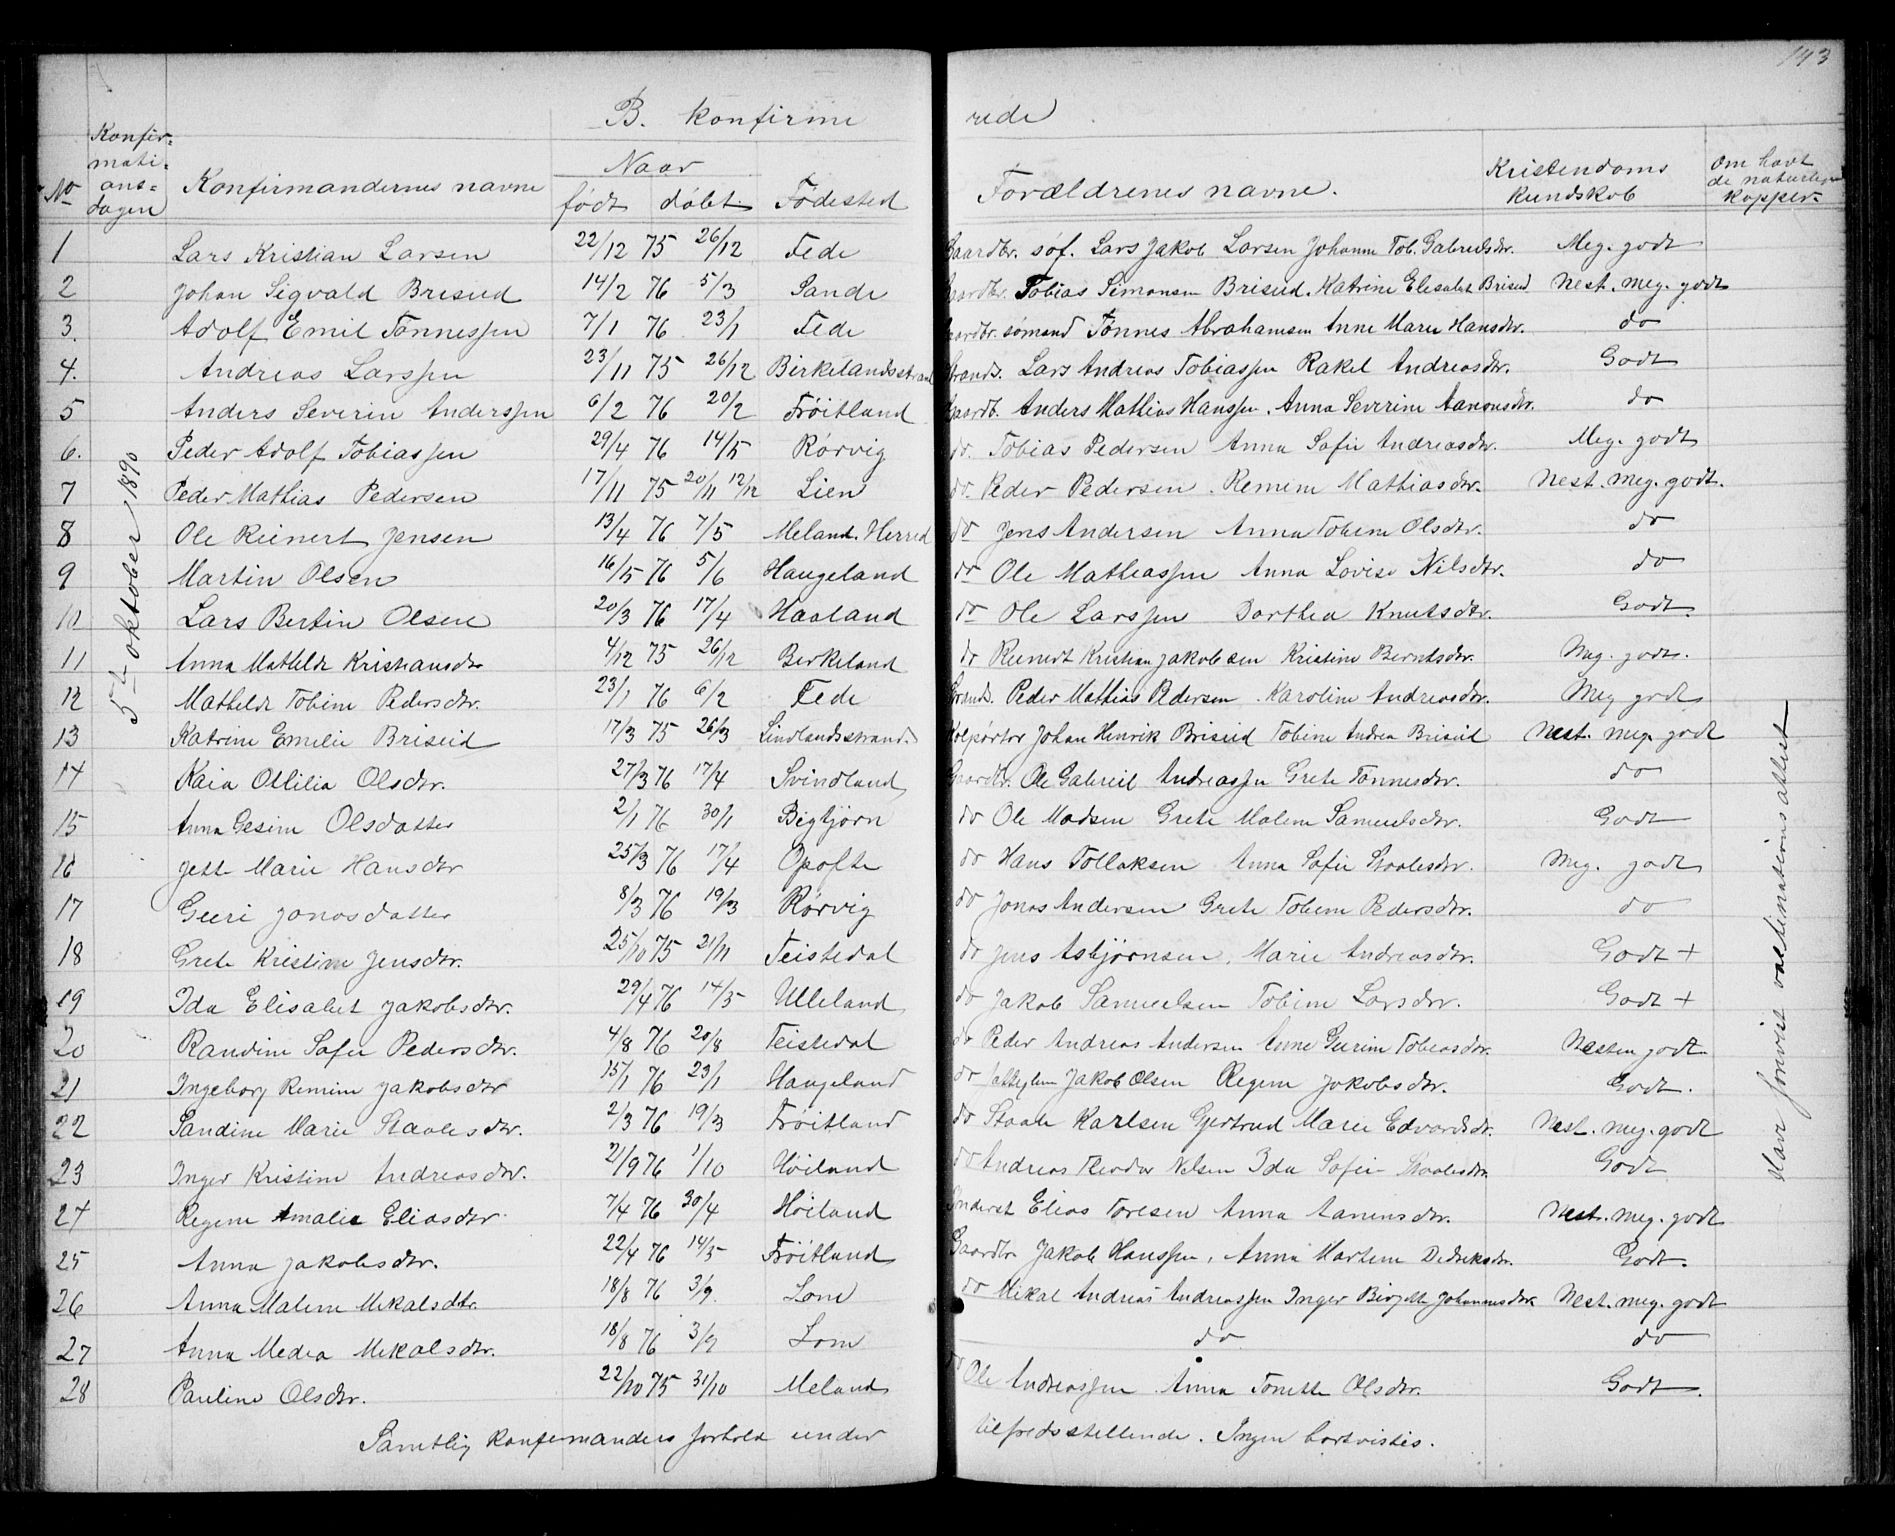 143
B. konfirme rede
No Konfir= mati= ons= dagen Konfirmandernes navne Naar født døbt Fødested Forældrenes navne. Kristendoms kundskab Om havt de naturlige kopper
5te oktober 1890
1 Lars Kristian Larsen 22/12 75 26/12 Fede Gaardbr. søf. Lars Jakob Larsen Johanne Tob. Gabrielsdtr. Meg. godt
2 Johan Sigvald Briseid 14/2 76 5/3 Sande Gaardbr. Tobias Simonsen Briseid. Katrine Elisabet Briseid Nest. meg. godt
3. Adolf Emil Tønnessen 7/1 76 23/1 Fede Gaardbr. sømand Tønnes Abrahamsen Anne Marie Hansdtr. do
4. Andreas Larssen 23/11 75 26/12 Birkelandsstrand Strands. Lars Andreas Tobiassen Rakel Andreasdtr. Godt
5 Anders Severin Anderssen 6/2 76 20/2 Frøitland Gaardb. Anders Mathias Hanssen. Anna Severine Aanonsdtr. do
6. Peder Adolf Tobiassen 29/4 76 14/5 Rørvig do. Tobias Pedersen Anna Sofie Andreasdtr. Meg. godt
7 Peder Mathias Pedersen 17/11 75 20/11 12/12 Lien do. Peder Pedersen. Remine Mathiasdtr. Nest. meg. godt.
8 Ole Reinert Jensen 13/4 76 7/5 Meland. Herred do Jens Andersen Anna Tobine Olsdtr. do
9 Martin Olsen 16/5 76 5/6 Haugeland do Ole Mathiassen Anna Lovise Nilsdtr. do
10 Lars Bertin Olsen 20/3 76 17/4 Haaland do Ole Larssen Dorthea Knutsdtr. Godt
11 Anna Mathilde Kristiansdtr 4/12 75 26/12 Berkeland do Reinert Kristian Jakobsen Kristine Berntsdtr. Meg. godt.
12 Mathilde Tobine Pedersdtr. 23/1 76 6/2 Fede Strands. Peder Mathias Pedersen. Karoline Andreasdtr. Meg godt
13 Katrine Emelie Briseid 17/3 75 26/3 Lindlandsstrand. Kolportør Johan Henrik Briseid Tobine Andrea Briseid Nest. meg. godt
14 Kaia Otilia Olsdtr. 27/3 76 17/4 Svindland Gaardbr. Ole Gabriel Andreassen Grete Tønnesdtr. do
15 Anna Gesine Olsdatter 2/1 76 30/1 Bigtjørn do Ole Madsen Grete Malene Samuelsdtr. Godt
16 Jette Marie Hansdtr 25/3 76 17/4 Opofte do Hans Tollaksen Anna Sofie Staalesdtr. Meg. godt
17 Geeri Jonasdatter 8/3 76 19/3 Rørvig do Jonas Andersen Grete Tobine Pedersdtr. do
18 Grete Kristine Jensdtr. 25/10 75 21/11 Teistedal do Jens Asbjørnsen. Marie Andreasdtr. Godt +
19 Ida Elisabet Jakobsdtr. 29/4 76 14/5 Ulleland do Jakob Samuelsen Tobine Larsdtr. Godt +
20 Randine Sofie Pedersdtr. 4/8 76 20/8 Teistedal do Peder Andreas Andersen Anne Geerine Tobiasdtr. Nesten godt
21 Ingeborg Remine Jakobsdtr 15/1 76 23/1 Haugeland do Jakob Olsen Regine Jakobsdtr. Godt.
22 Sandine Marie Staalesdtr. 2/3 76 19/3 Frøitland do Staale Karlsen Gjertrud Marie Edvardsdtr. Nest. meg. godt
23 Inger Kristine Andreasdtr. 2/9 76 1/10 Høiland do Andreas Teodor Nilsen Ida Sofie Staalesdtr. Godt
24 Regine Amalie Eliasdtr. 7/4 76 30/4 Høiland Inderst Elias Toresen Anna Aanensdtr. Nest. meg. godt
25 Anna Jakobsdtr. 22/4 76 14/5 Frøitland Gaardbr Jakob Hanssen. Anna Martine Dedriksdtr. Godt.
26 Anna Malene Mekalsdtr. 18/8 76 3/9 Lone do Mikal Andreas Andreassen Inger Birgitte Johannesdtr. Nest. meg. godt
27 Anna Medea Mekalsdtr. 18/8 76 3/9 Lone do do
28 Pauline Olsdtr. 22/10 75 31/10 Meland do Ole Andreassen Anna Tonette Olsdtr. Godt.
Har forevist vaccinationsattest
Samtlig konfirmanders forhold under tilfredsstillende. Ingen bortvistes.